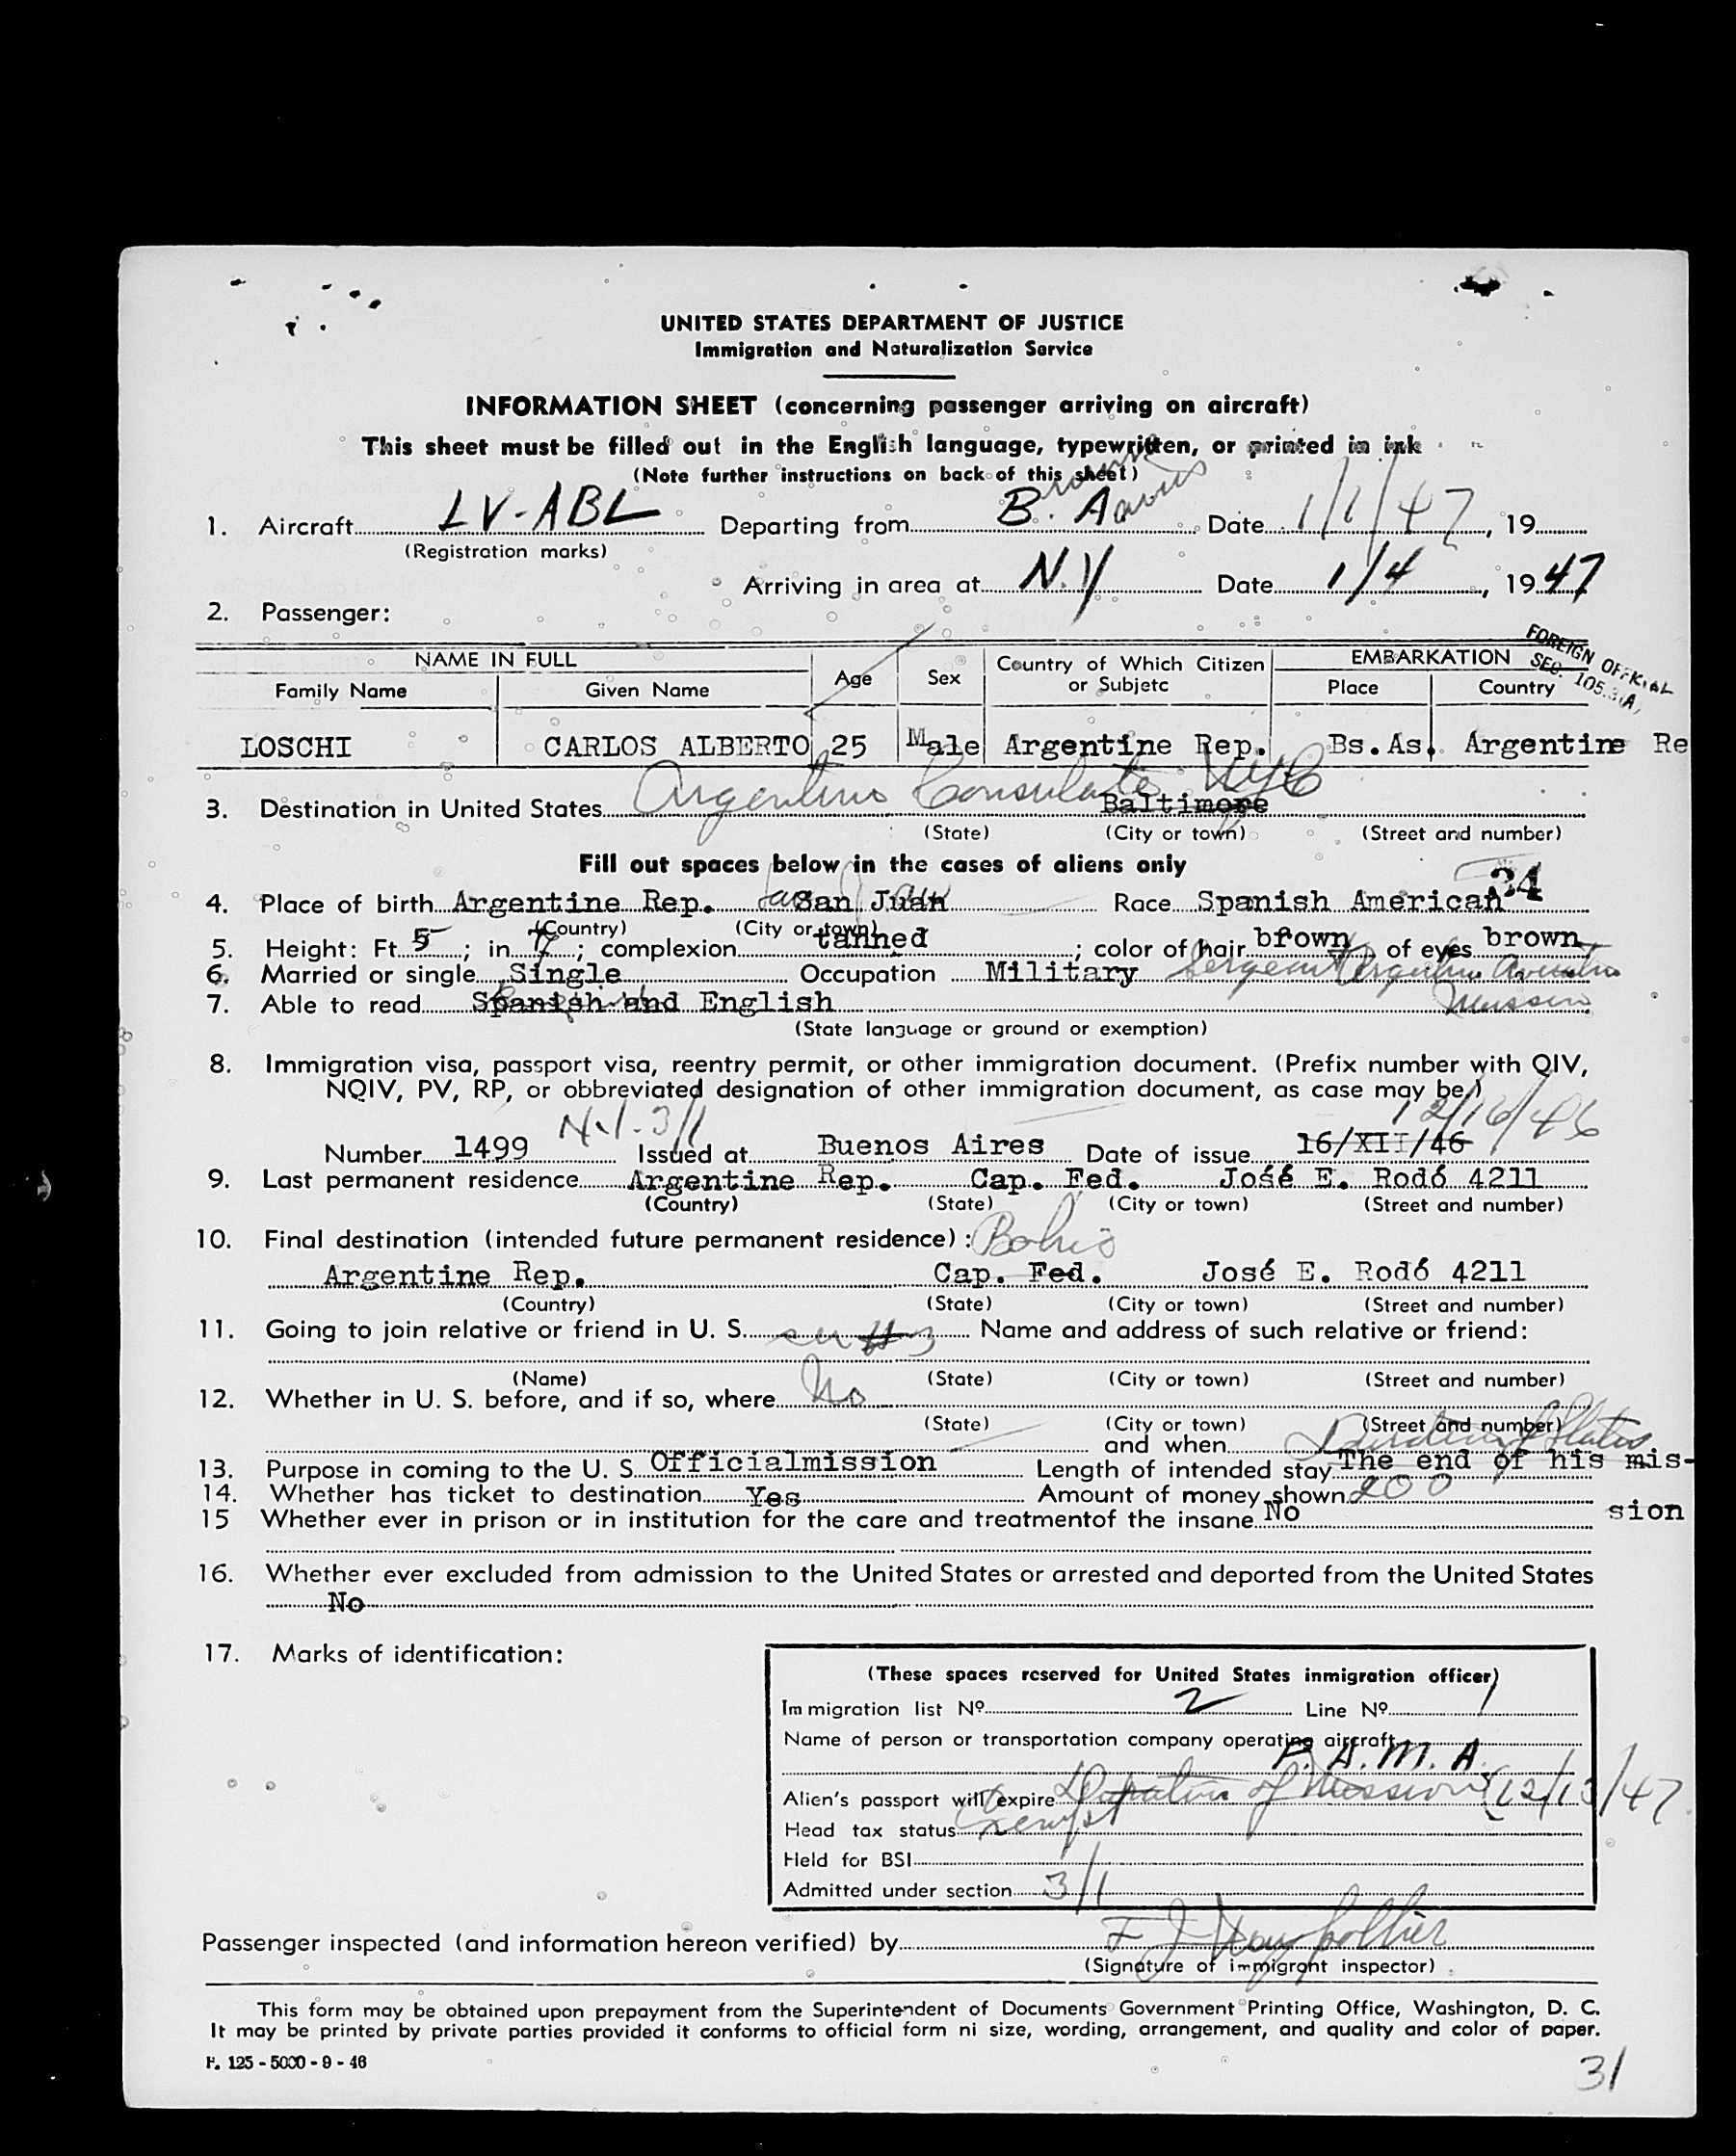 UNITED STATES DEPARTMENT OF JUSTICE
Immigration and Naturalization Service
INFORMATION SHEET (concerning passenger arriving on aircraft)
This sheet must be filled out in the English language, typewritten, or printed in ink
(Note further instructions on back of this sheet)
1. Aircraft LV-ABL Departing from B. Aires Date 1/1/47, 19
(Registration marks)
Arriving in area at N.Y Date 1/4, 19 47
2. Passenger:
FOREIGN OFFICIAL
NAME IN FULL Age Sex Country of Which Citizen EMBARKATION SEC. 105.3(A)
Family Name Given Name or Subjetc Place Country
LOSCHI CARLOS ALBERTO 25 Male Argentine Rep. Bs.As. Argentine Re
3. Destination in United States Argentine Consulate NYC Baltimore
(State) (City or town) (Street and number)
Fill out spaces below in the cases of aliens only
34
4. Place of birth Argentine Rep. San Juan Race Spanish American
(Country) (City or town)
5. Height: Ft. 5; in. 7; complexion tanned; color of hair brown of eyes brown
6. Married or single Single Occupation Military Sergeant Argentine
7. Able to read Spanish and English Mission
(State language or ground or exemption)
8. Immigration visa, passport visa, reentry permit, or other immigration document. (Prefix number with QIV,
NQIV, PV, RP, or obbreviated designation of other immigration document, as case may be.)
12/16/46
Number 1499 3/1 Issued at Buenos Aires Date of issue 16/XII/46
9. Last permanent residence Argentine Rep. Cap. Fed. José E. Rodó 4211
(Country) (State) (City or town) (Street and number)
10. Final destination (intended future permanent residence):
Argentine Rep. Cap. Fed. José E. Rodó 4211
(Country) (State) (City or town) (Street and number)
11. Going to join relative or friend in U. S. see #3 Name and address of such relative or friend:
(Name) (State) (City or town) (Street and number)
12. Whether in U. S. before, and if so, where No
(State) (City or town) (Street and number)
and when Duration of Status
13. Purpose in coming to the U. S. Officialmission Length of intended stay The end of his mis-
14. Whether has ticket to destination Yes Amount of money shown 200
sion
15 Whether ever in prison or in institution for the care and treatmentof the insane No
16. Whether ever excluded from admission to the United States or arrested and deported from the United States
No
17. Marks of identification:
(These spaces reserved for United States inmigration officer)
Immigration list Nº 2 Line Nº 1
Name of person or transportation company operating aircraft
F. A. M. A.
Alien's passport will expire Duration of Mission (12/13/47
Head tax status Exempt
Held for BSI
Admitted under section 3/1
Passenger inspected (and information hereon verified) by
(Signature of immigrant inspector)
This form may be obtained upon prepayment from the Superintendent of Documents Government Printing Office, Washington, D. C.
It may be printed by private parties provided it conforms to official form ni size, wording, arrangement, and quality and color of paper.
F. 125 - 5000 - 9 - 46
31